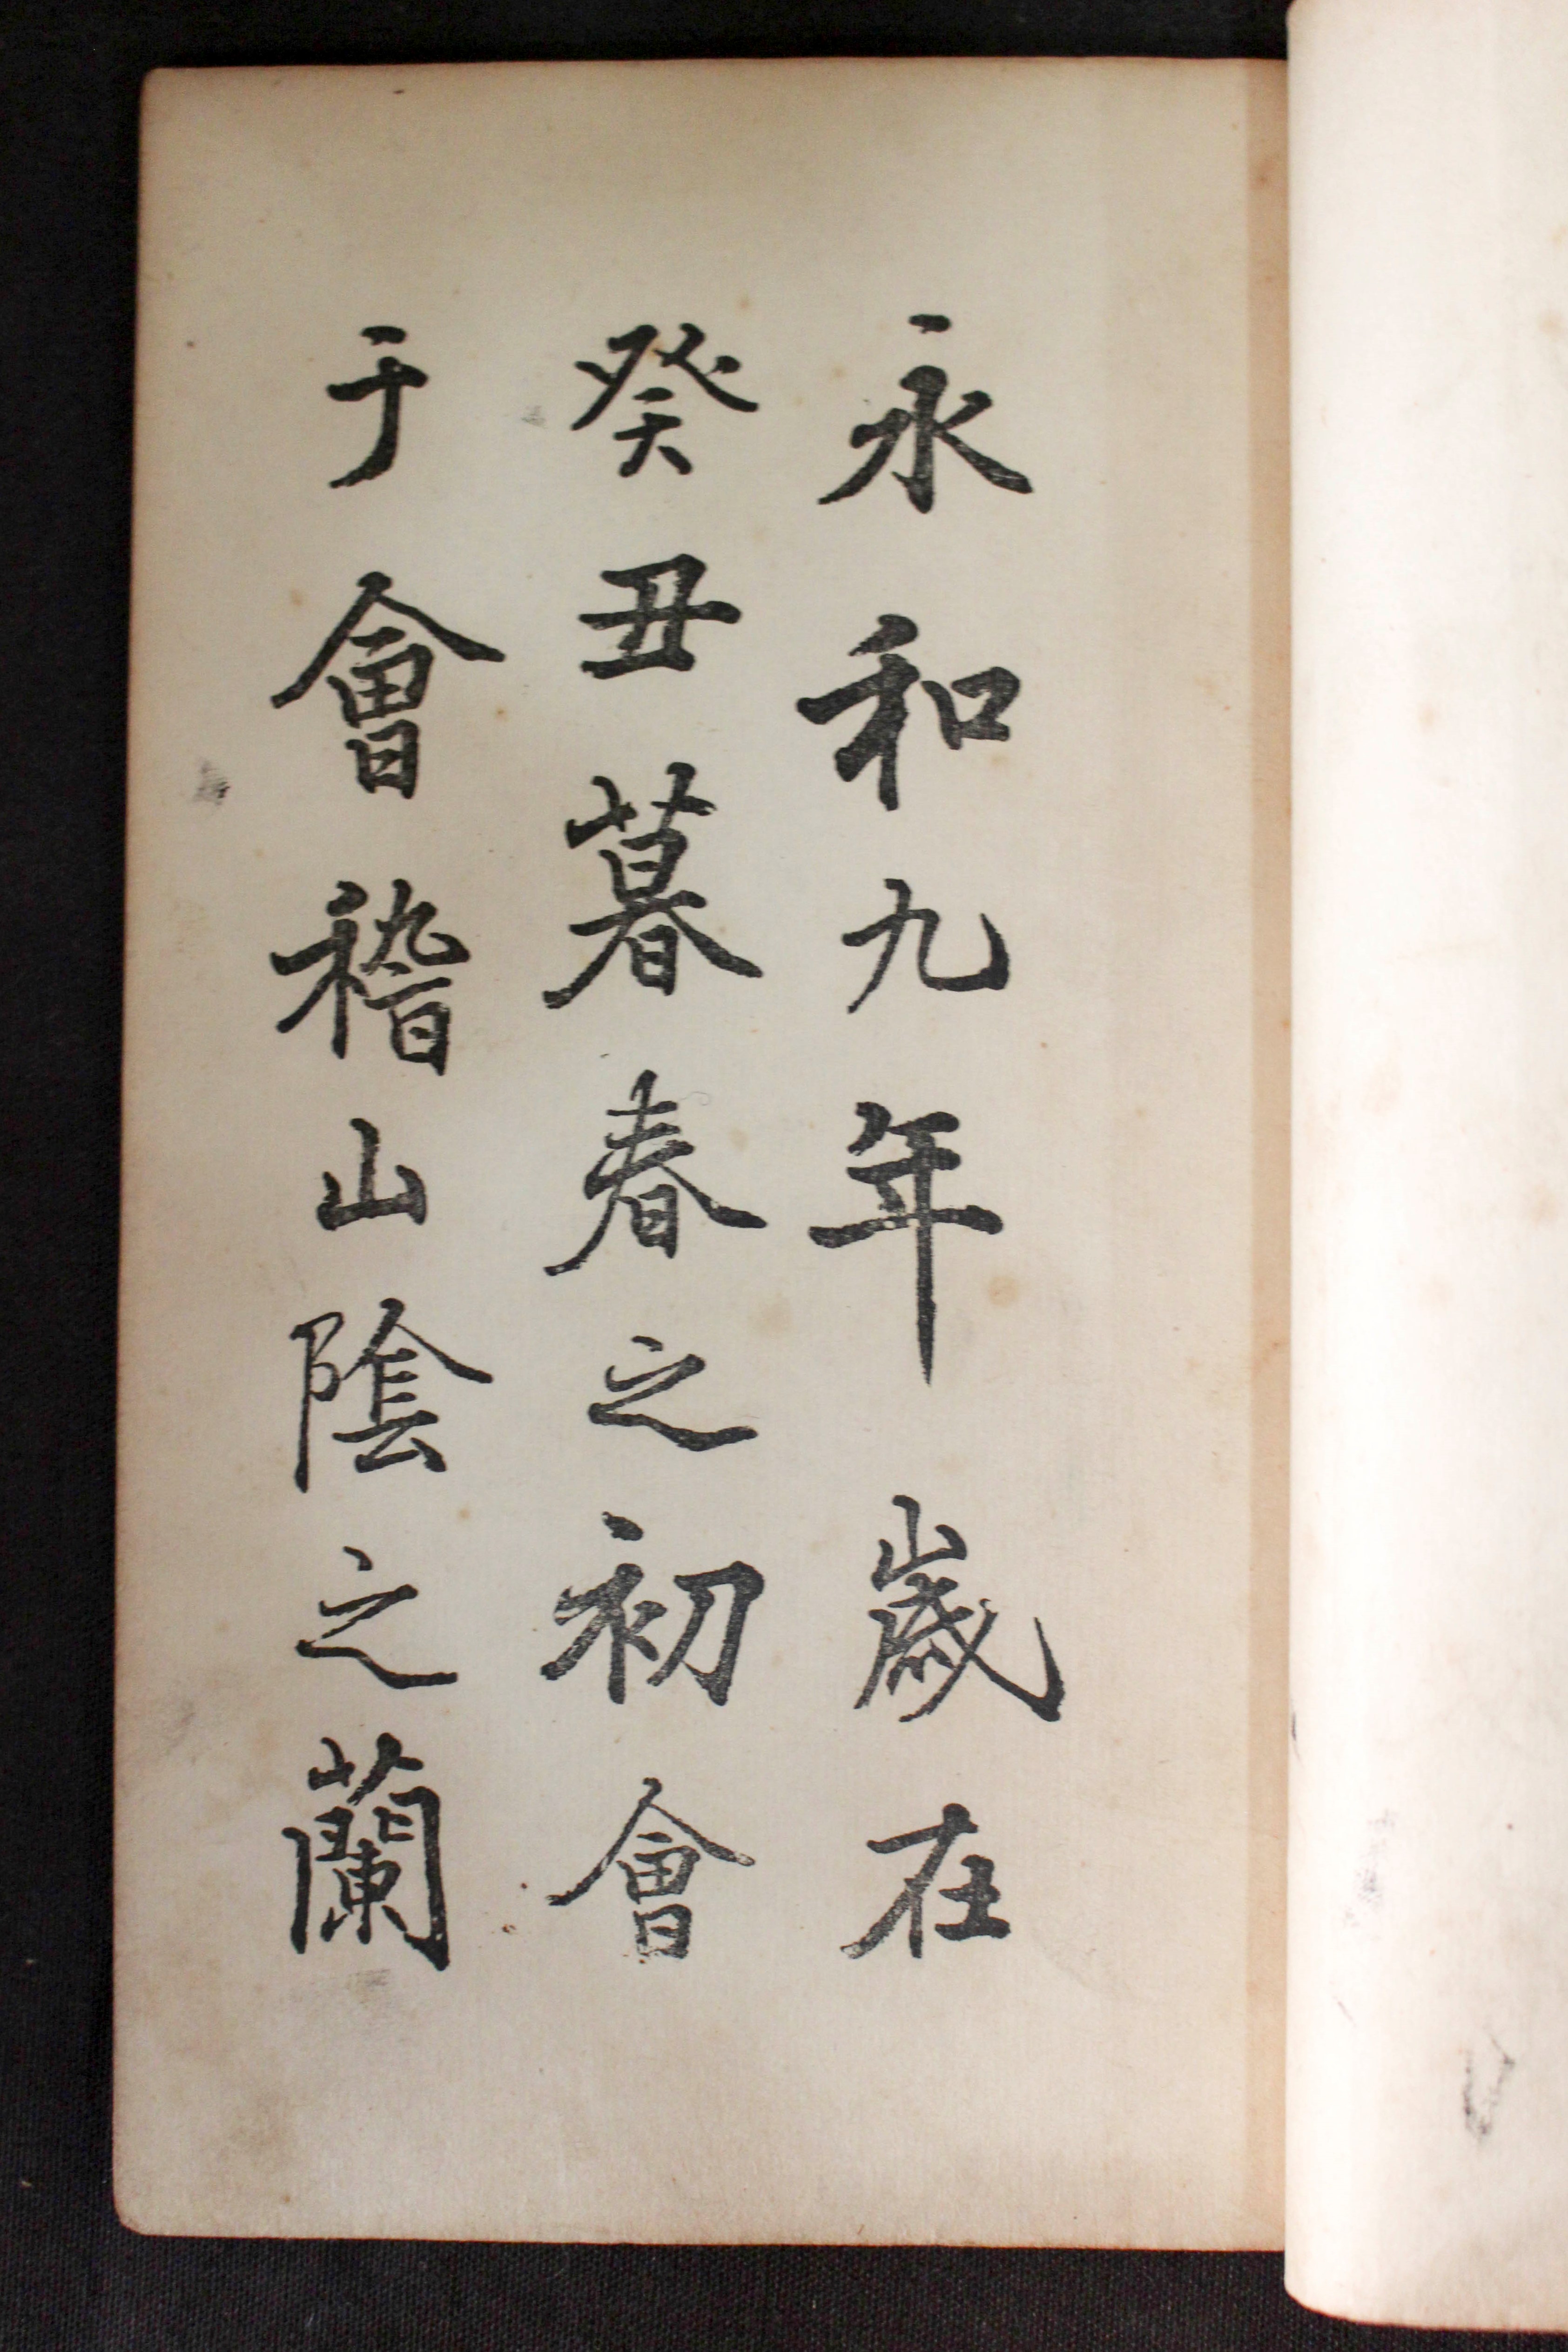 永和九年歲在
癸丑暮春之初會
于會稽山陰之蘭